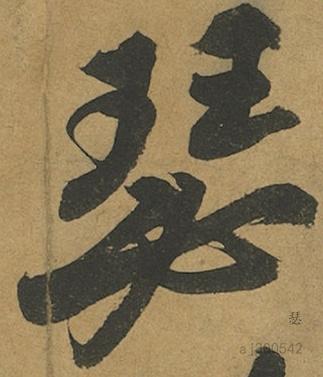 瑟
瑟
aj300542